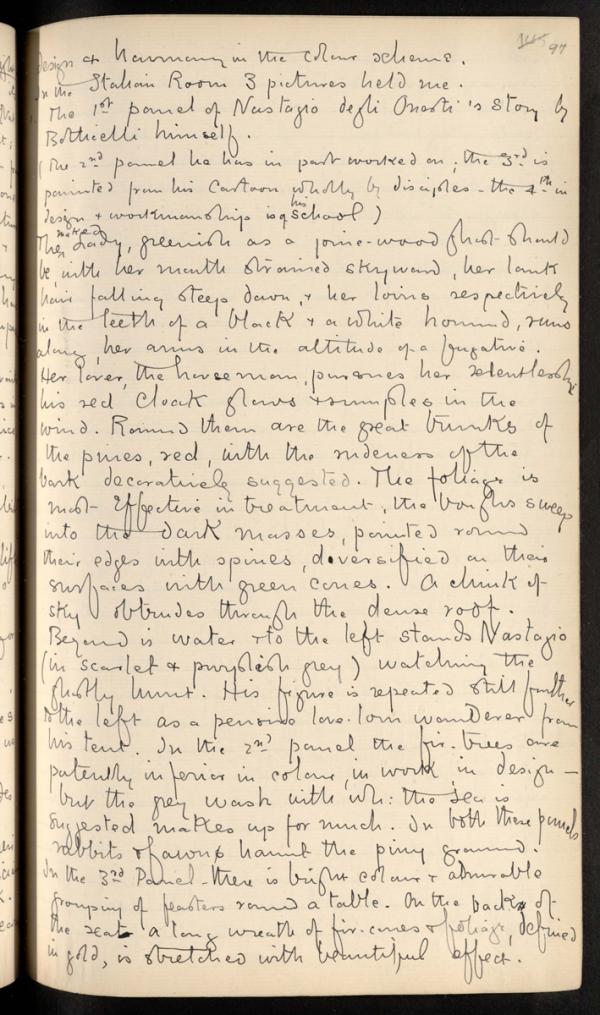 97
design & harmony in the colour scheme.
In the Italian Room 3 pictures held me.
The 1st panel of Nastagio degli Onesti's Story by
Botticelli himself.
(The 2nd panel he has in part worked on; the 3rd is
painted from his Cartoon wholly by disciples - the 4th in
design & workmanship is of his School)
The naked Lady, greenish as a pine-wood ghost should
be, with her mouth strained skyward, her lank
hair falling steep down, & her loins respectively
in the teeth of a black & a white hound, runs
along, her arms in the attitude of a fugative.
Her lover, the horseman, pursues her relentlessly,
his red cloak flows & rumples in the
wind. Round them are the great trunks of
the pines, red, with the rudeness of the
bark decoratively suggested. The foliage is
most effective in treatment, the boughs sweep
into the dark masses, painted round
their edges with spines, diversified on their
surfaces with green cones. A chink of
sky obtrudes through the dense roof.
Beyond is water & to the left stands Nastagio
(in scarlet & purplish grey) watching the
ghostly hunt. His figure is repeated still further
to the left as a pensive love-lorn wanderer from
his tent. In the 2nd panel the fir-trees are
patently inferior in colour, in work, in design —
but the grey wash with wh: the sea is
suggested makes up for much. In both these panels
rabbits & fawns haunt the piny ground.
In the 3rd Panel - there is bright colour & admirable
grouping of feasters round a table. On the back of
the seat a long wreath of fir-cones & foliage, defined
in gold, is stretched with beautiful effect.